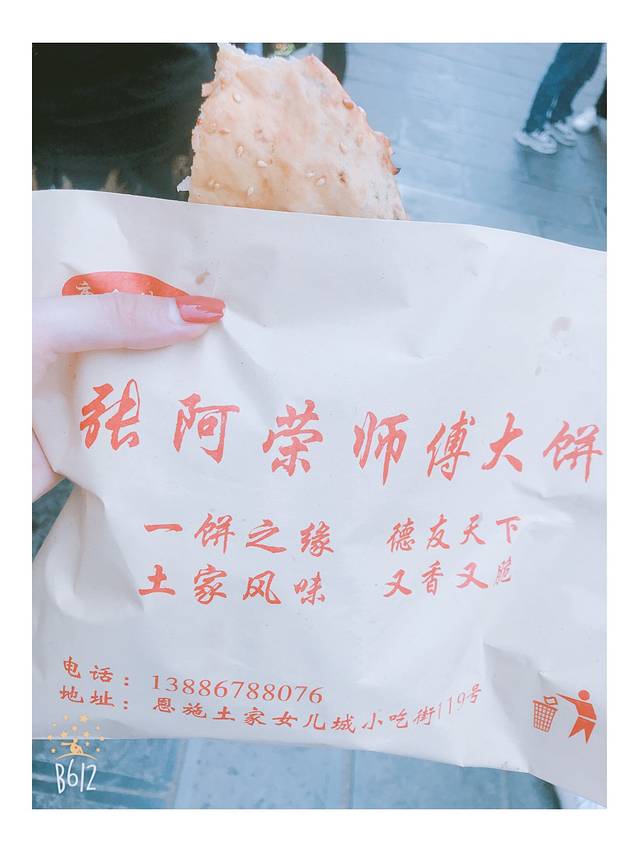 张阿荣师傅大饼
一饼之缘 德友天下
土家风味 又香又脆
电话：13886788076
地址：恩施土家女儿城小吃街119号
B612